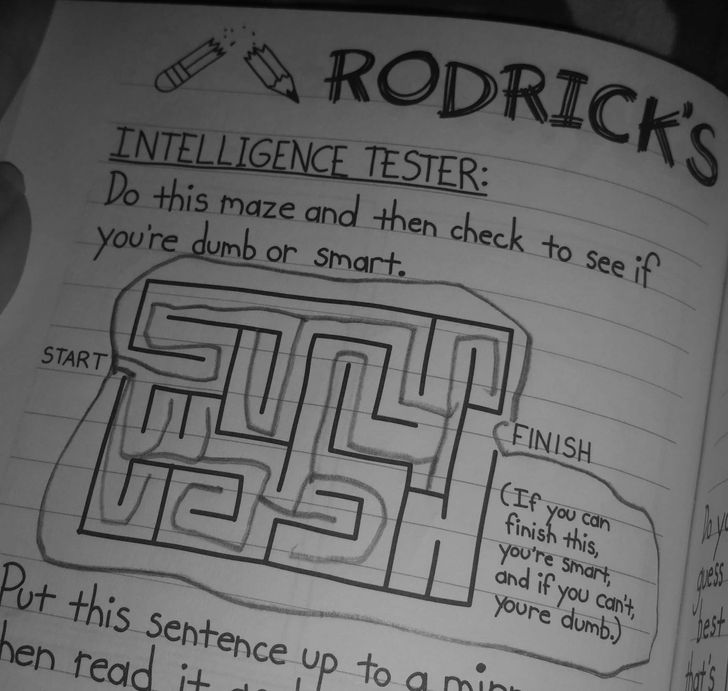 RODRICK'S
INTELLIGENCE TESTER:
Do this maze and then check to see if
you're dumb or smart.
START
FINISH
(If you can
finish this,
you're smart,
and if you can't,
youre dumb.)
Put this sentence up to a
hen read it
guess
best
that's